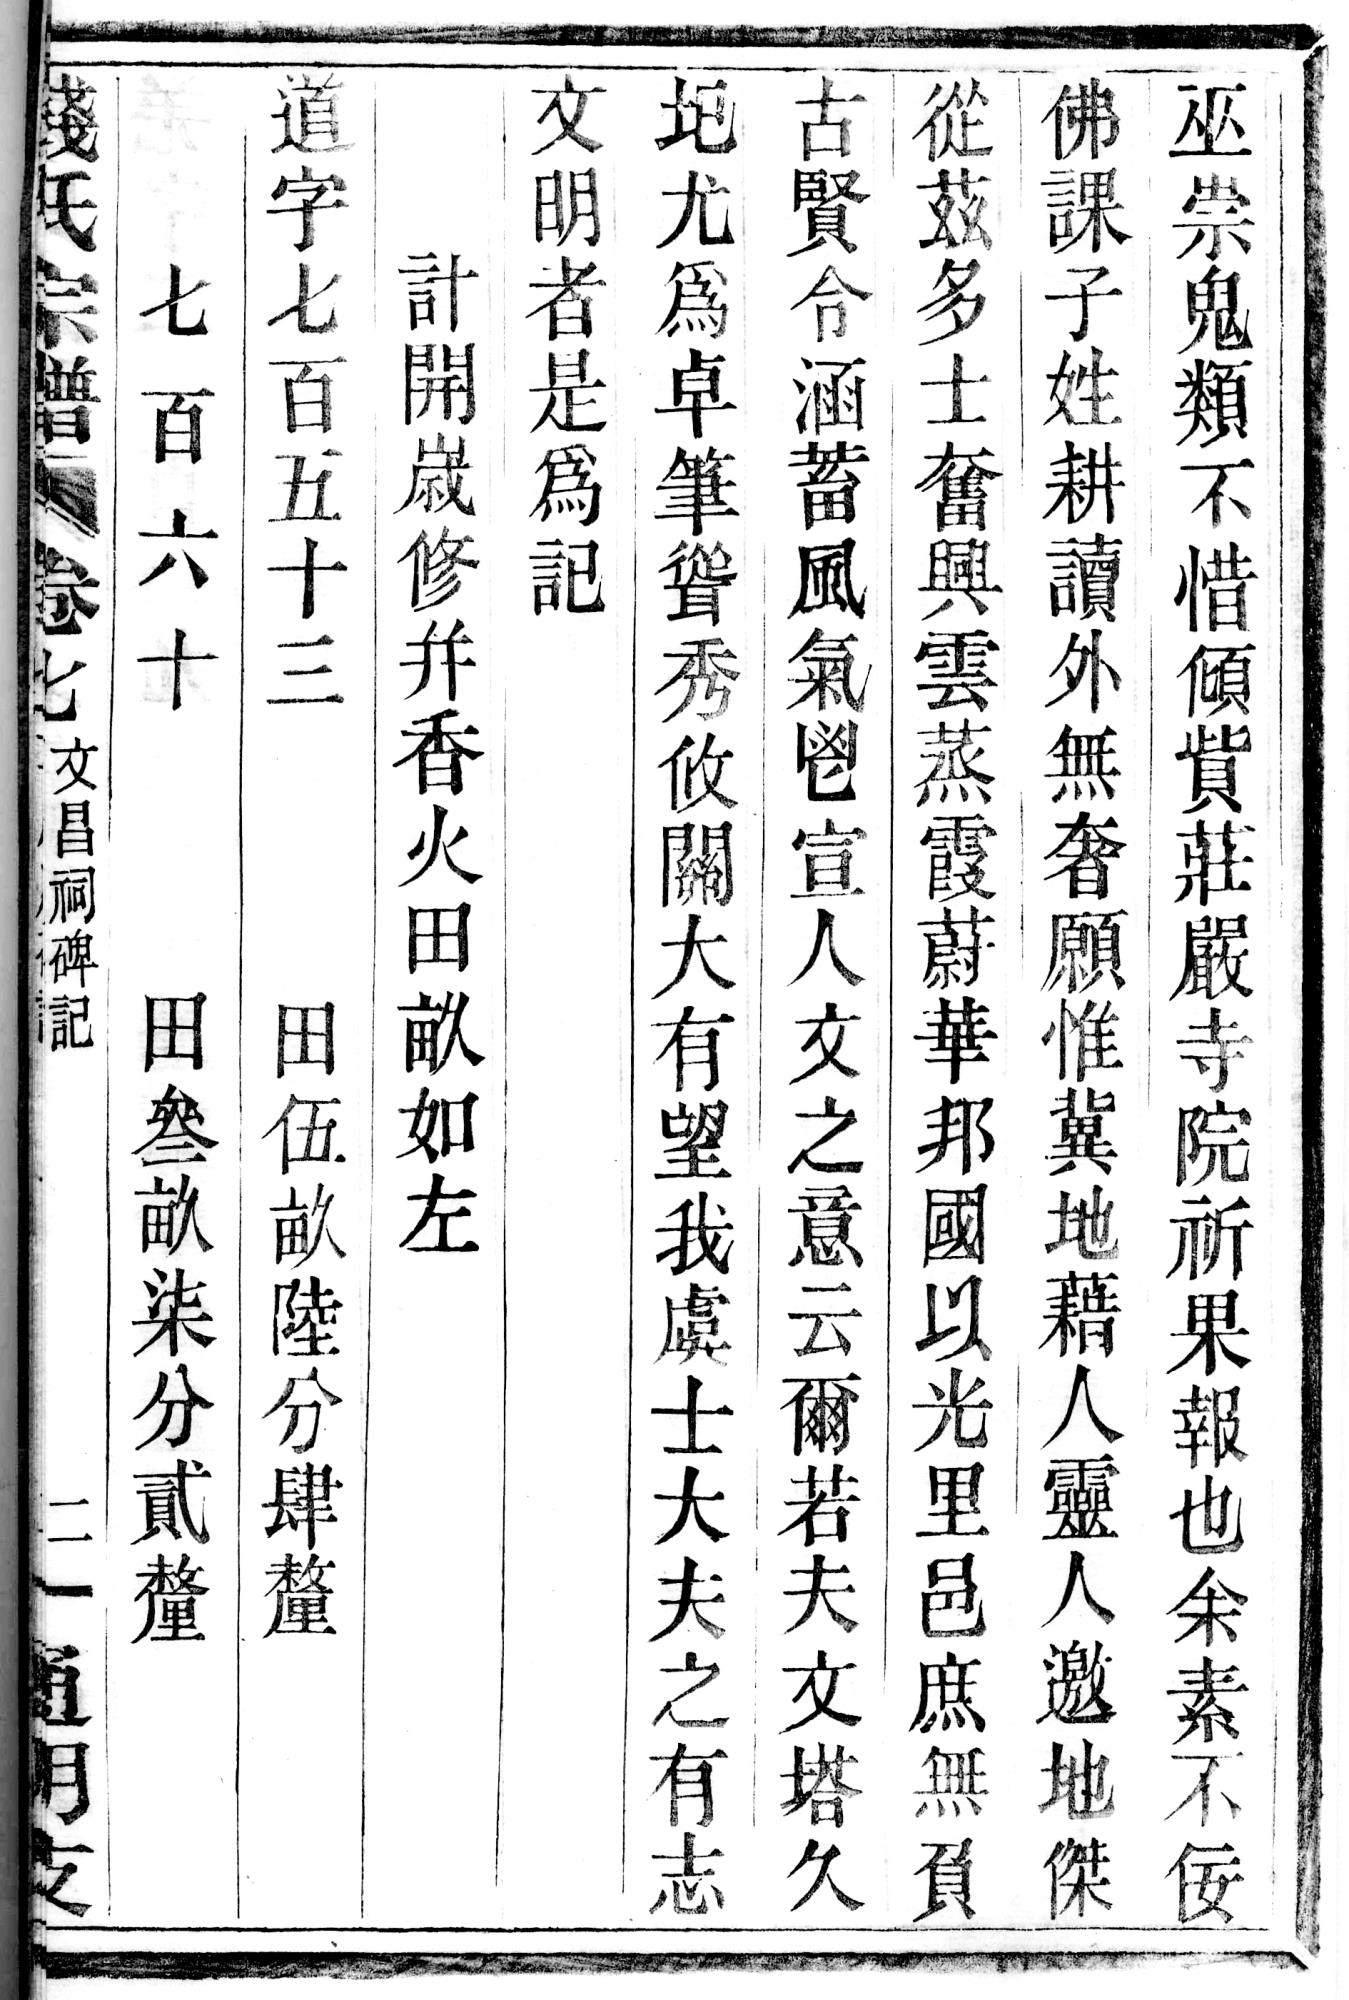 巫祟鬼類不惜傾貲莊嚴寺院祈果報也余素不佞
佛課子姓耕讀外無奢願惟冀地藉人靈人邀地傑
從茲多士奮興雲蒸霞蔚華邦國以光里邑庶無負
古賢令涵蓄風氣鬯宣人文之意云爾若夫文塔久
圮尤爲卓筆聳秀攸關大有望我虞士大夫之有志
文明者是爲記
計開歲修并香火田畝如左
道字七百五十三 田伍畝陸分肆釐
七百六十 田叄畝柒分貳釐
錢氏宗譜 卷七 文昌祠碑記 二 通明支